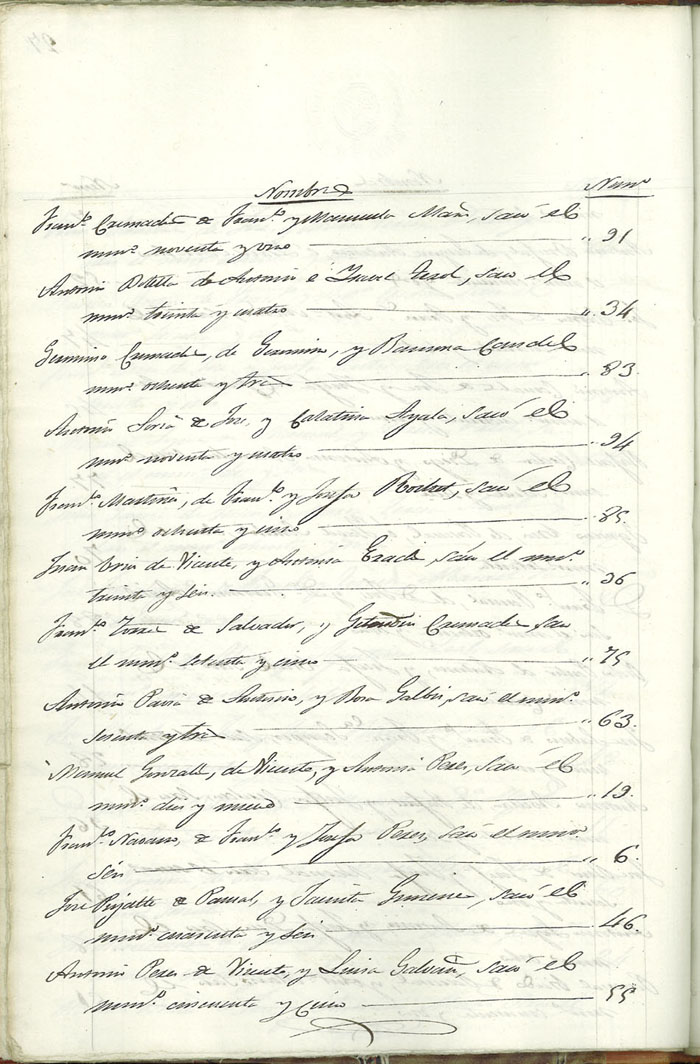 Nombres Numº
Franº Cremades de Franº y Manuela Mas, sacó el
numº noventa y uno " 91
Antonio Botella de Antonio e Ysavel, saco el
numº treinta y cuatro " 34
Geronimo Cremades, de Geronimo, y Ramona Candel
numº ochenta y tres " 83
Antonio Soria de Jose, y Catalina Ayala, sacó el
numº noventa y cuatro " 94
Franº Martines, de Franº y Josefa, sacó el
numº ochenta y cinco " 85
Juan de Vicente, y Antonia, saco el numº
treinta y seis. " 36
Franº Torres de Salvador, y Cremades saco
el numº setenta y cinco " 75
Antonio Pavia de Antonio, y Rosa Galbis, sacó el numº
sesenta y tres " 63
Manuel Gonzales, de Vicente, y Antonia Peres, saco el
numº dies y nueve " 19
Franº Navarro, de Franº y Josefa Peres, sacó el numº
séis " 6.
Jose de Pascual, y Jacinta Gimenes, sacó el
numº cuarenta y seis " 46
Antonio Peres de Vicente, y Luisa Galvañ, sacó el
numº cincuenta y cinco " 55